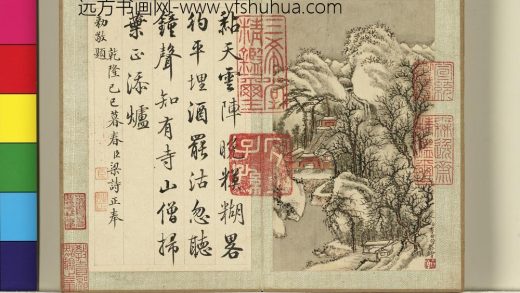 远方书画网-www.yfshuhua.com
黏天雲陣晚模糊畧
彴平埋酒罷沽忽聽
鐘聲知有寺山僧掃
葉正添爐
乾隆己巳暮春臣梁詩正奉
勅敬題
三希堂
精鑑璽
宜
子孫